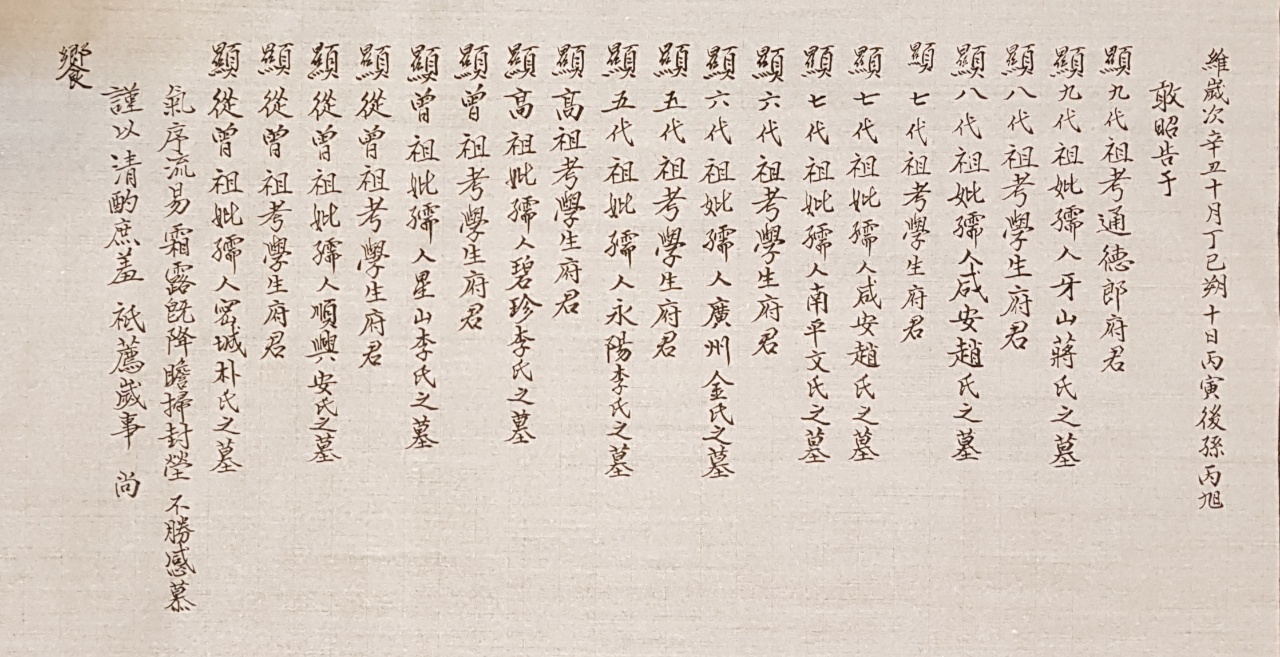 維歲次辛丑十月丁巳朔十日丙寅後孫丙旭
敢昭告于
顯九代祖考通德郎府君
顯九代祖妣孺人牙山蔣氏之墓
顯八代祖考學生府君
顯八代祖妣孺人咸安趙氏之墓
顯七代祖考學生府君
顯七代祖妣孺人咸安趙氏之墓
顯七代祖妣孺人南平文氏之墓
顯六代祖考學生府君
顯六代祖妣孺人廣州金氏之墓
顯五代祖考學生府君
顯五代祖妣孺人永陽李氏之墓
顯高祖考學生府君
顯高祖妣孺人碧珍李氏之墓
顯曾祖考學生府君
顯曾祖妣孺人星山李氏之墓
顯從曾祖考學生府君
顯從曾祖妣孺人順興安氏之墓
顯從曾祖考學生府君
顯從曾祖妣孺人密城朴氏之墓
氣序流易霜露旣降瞻掃封塋 不勝感慕
謹以清酌庶羞 祗薦歲事 尚
饗